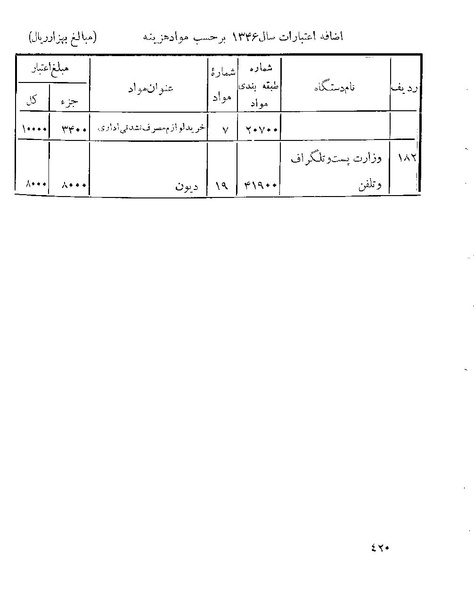 اضافه اعتبارات سال ۱۳۴۶ برحسب مواد هزینه (مبالغ بهزار ریال)
ردیف نام دستگاه شماره طبقه بندی مواد شمارهٔ مواد عنوان مواد مبلغ اعتبار
جزء کل
۲۰۷۰۰ ۷ خرید لوازم مصرف نشدنی اداری ۳۴۰۰ ۱۰۰۰۰
۱۸۲ وزارت پست و تلگراف
و تلفن ۴۱۹۰۰ ۱۹ دیون ۸۰۰۰ ۸۰۰۰
۴۲۰